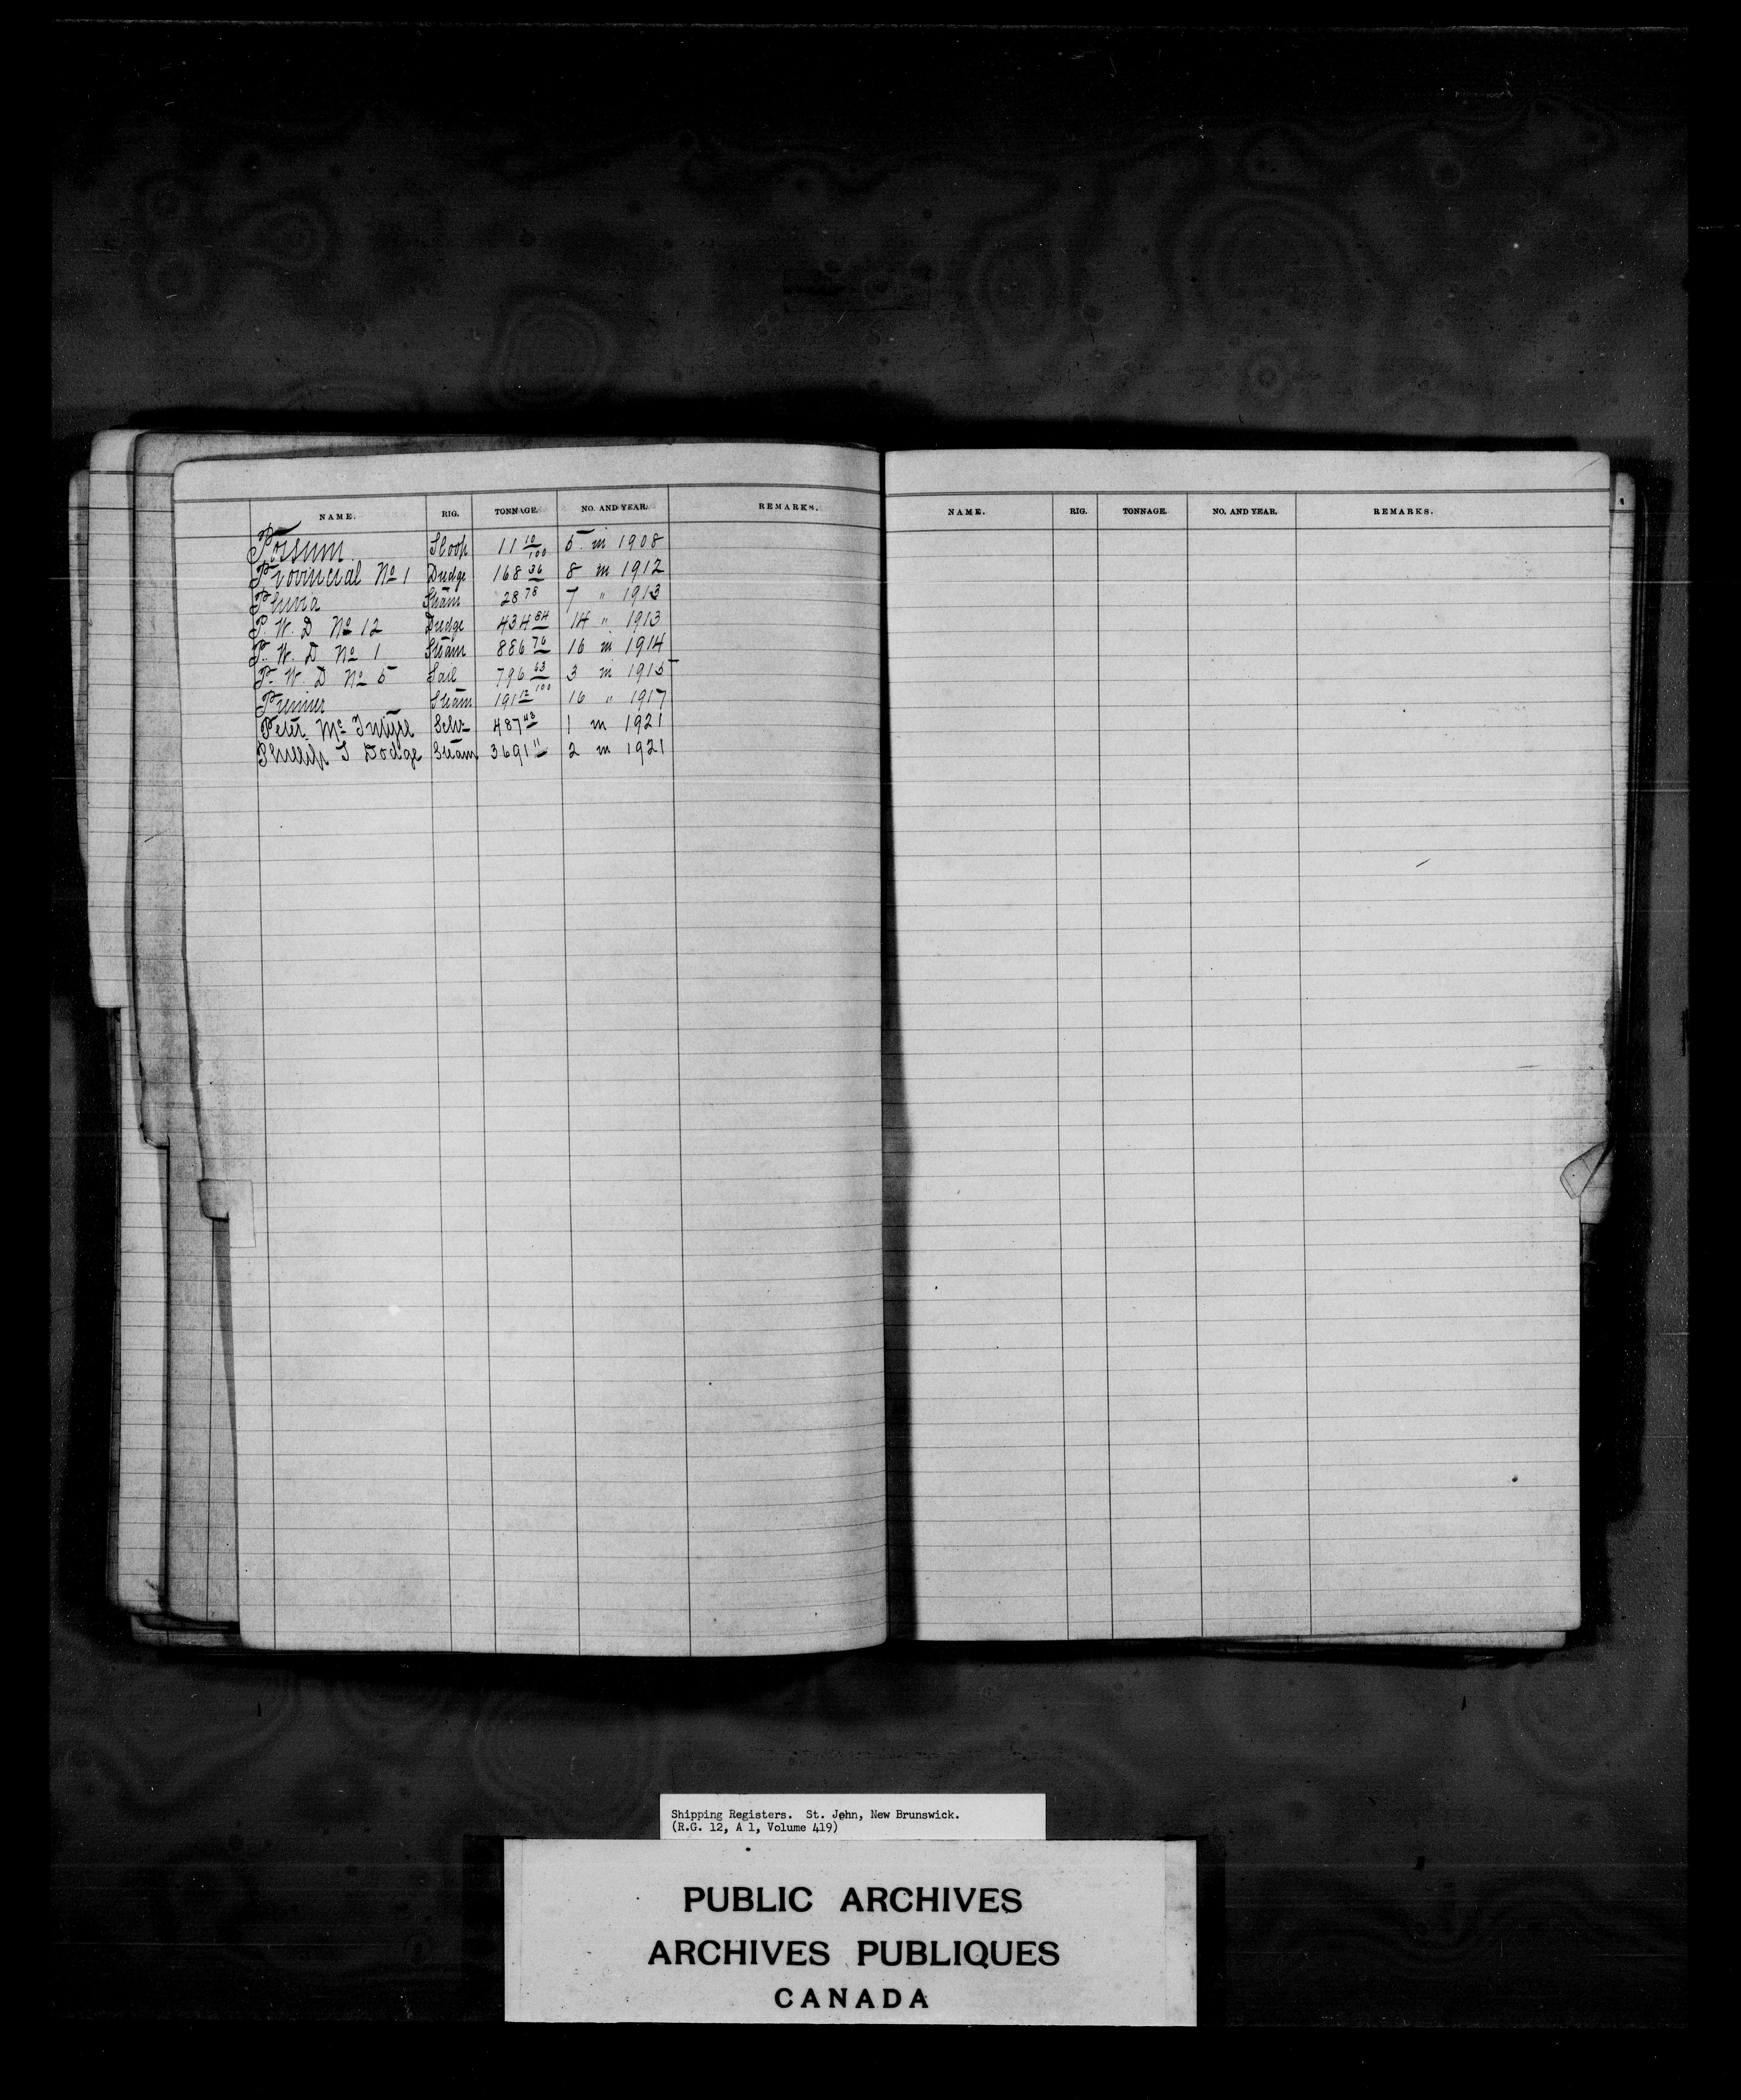 NAME. RIG. TONNAGE. NO. AND YEAR. REMARKS.
Possum Sloop 11 10/100 5 in 1908
Provincial No 1 Dredge 168 36 8 in 1912
Steam 28 78 7 " 1913
P. W. D No 12 Dredge 434 84 14 " 1913
P. W. D No 1 Steam 886 76 16 in 1914
P. W. D No 5 Sail 796 63/100 3 in 1915
Premier Steam 191 12 16 " 1917
Peter Mc Intyre Schr 487 48 1 in 1921
Phillip T Dodge Steam 3691 11 2 in 1921
NAME. RIG. TONNAGE. NO. AND YEAR. REMARKS.
Shipping Registers. St. John, New Brunswick.
(R.G. 12, A 1, Volume 419)
PUBLIC ARCHIVES
ARCHIVES PUBLIQUES
CANADA